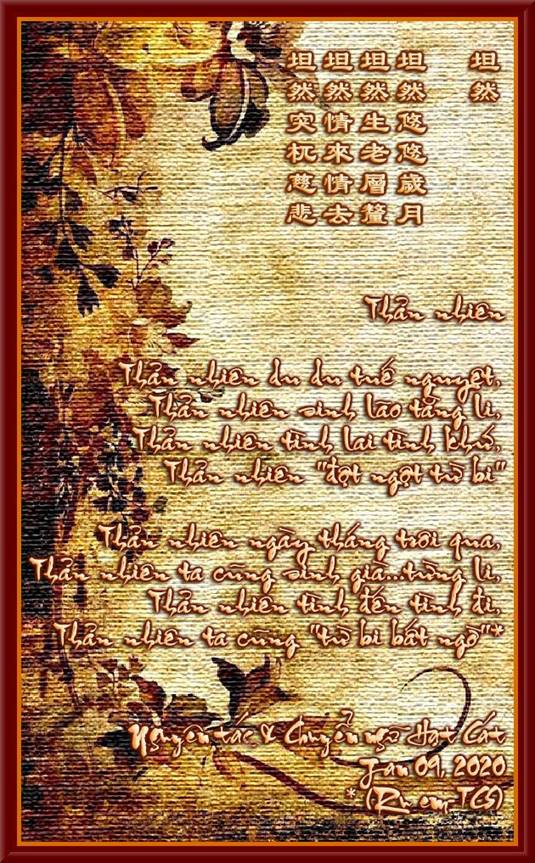 坦然
坦然悠悠歲月
坦然生老層釐
坦然情來情去
坦然突杌慈悲
Thản nhiên
Thản nhiên du du tuế nguyệt,
Thản nhiên sinh lão tằng li,
Thản nhiên tình lai tình khứ,
Thản nhiên "đột ngột từ bi"
Thản nhiên ngày tháng trôi qua,
Thản nhiên ta cũng sinh già...từng li,
Thản nhiên tình đến tình đi,
Thản nhiên ta cũng "từ bi bất ngờ"*
Nguyên tác & Chuyển ngữ Hạt Cát
Jan 09, 2020
* (Ru em, TCS)